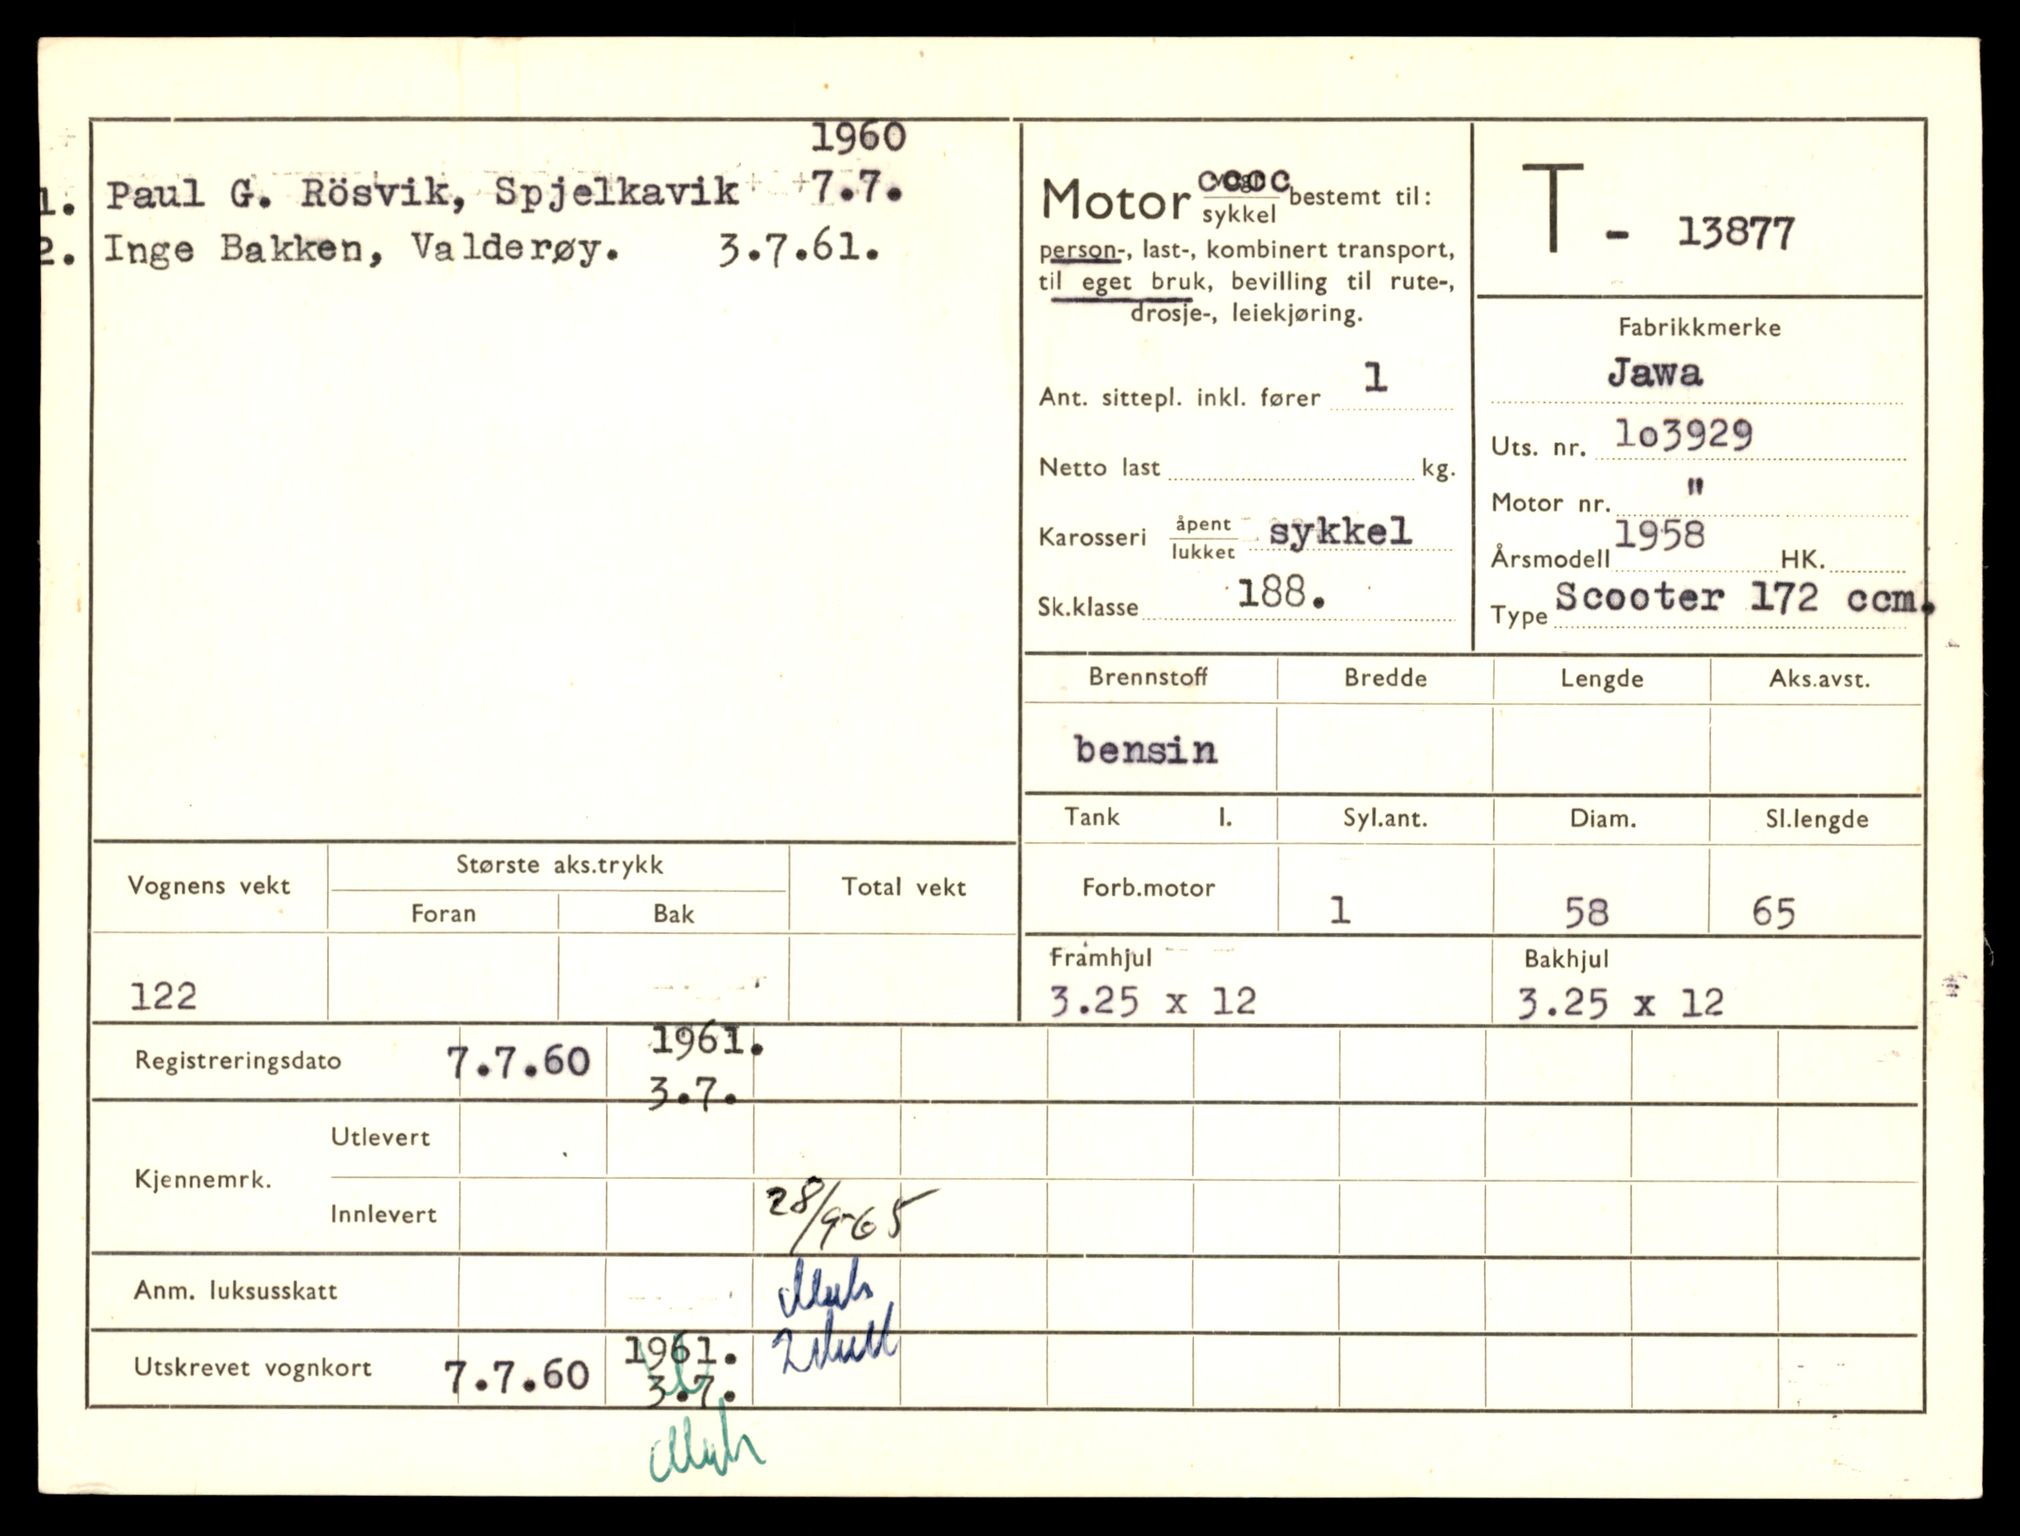 1960
1. Paul G. Rösvik, Spjelkavik 7.7.
2. Inge Bakken, Valderøy. 3.7.61.
Motor vogn sykkel bestemt til:
person-, last-, kombinert transport,
til eget bruk, bevilling til rute-,
drosje-, leiekjøring.
Ant. sittepl. inkl. fører 1
Netto last kg.
Karosseri åpent lukket sykkel
Sk.klasse 188.
T - 13877
Fabrikkmerke
Jawa
Uts. nr. lo3929
Motor nr. "
Årsmodell 1958 HK.
Type Scooter 172 ccm.
Brennstoff Bredde Lengde Aks.avst.
bensin
Tank l. Syl.ant. Diam. Sl.lengde
Forb.motor 1 58 65
Framhjul Bakhjul
3.25 x 12 3.25 x 12
Vognens vekt Største aks.trykk Total vekt
Foran Bak
122
Registreringsdato 7.7.60 1961. 3.7.
Kjennemrk. Utlevert
Innlevert 28/9-65
Anm. luksusskatt
Utskrevet vognkort 7.7.60 1961. 3.7.